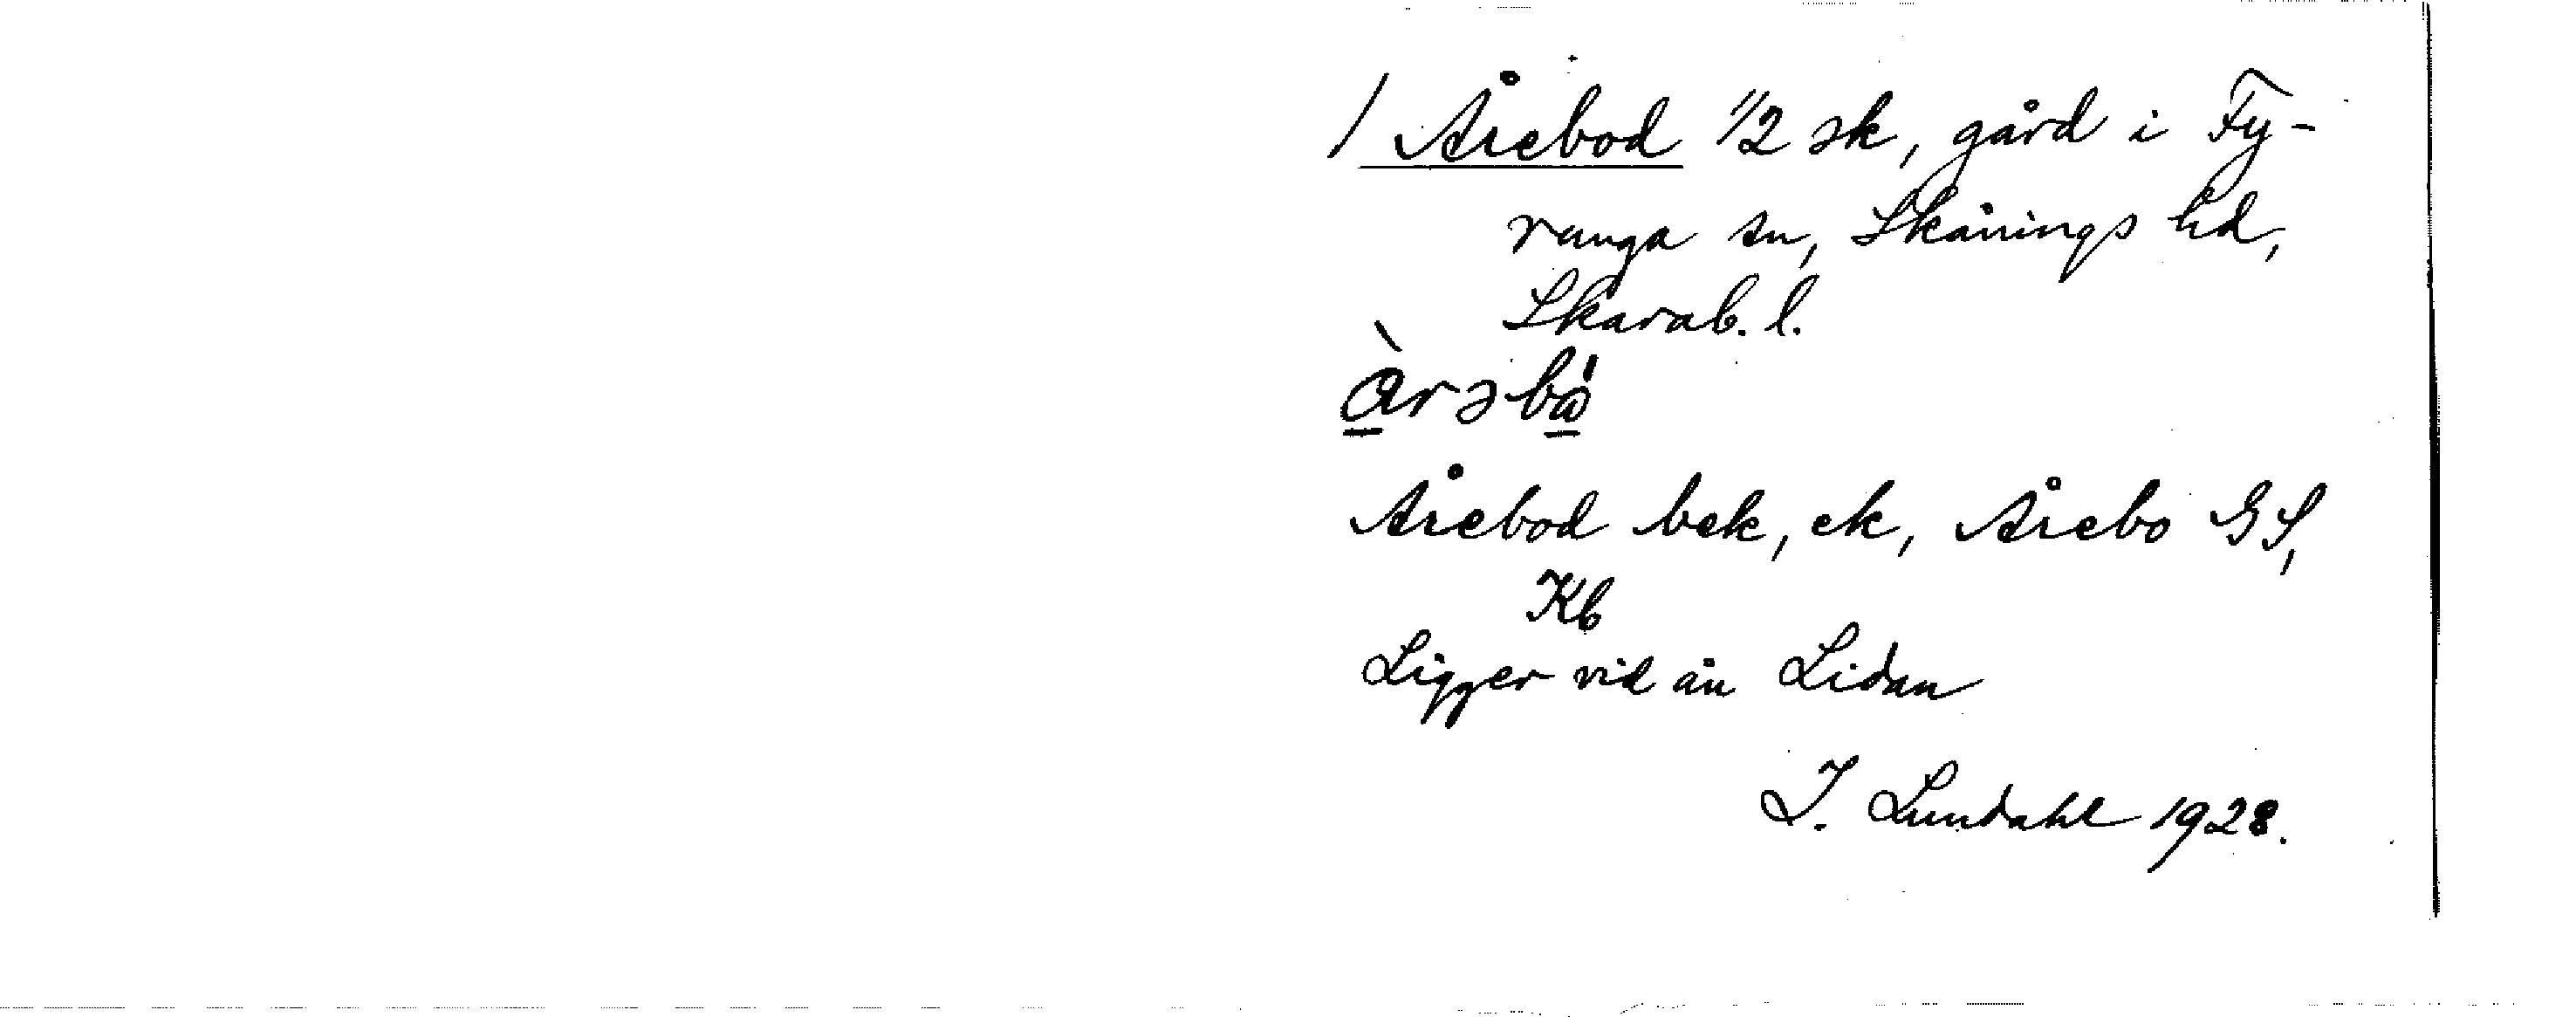 / Årebod 1/2 sk, gård i Fy-
runga sn, Skånings hd,
Skarab. l.
Årebod bek, ek, Årebo GS,
Kb
Ligger vid ån Lidan
I. Lundahl 1928.